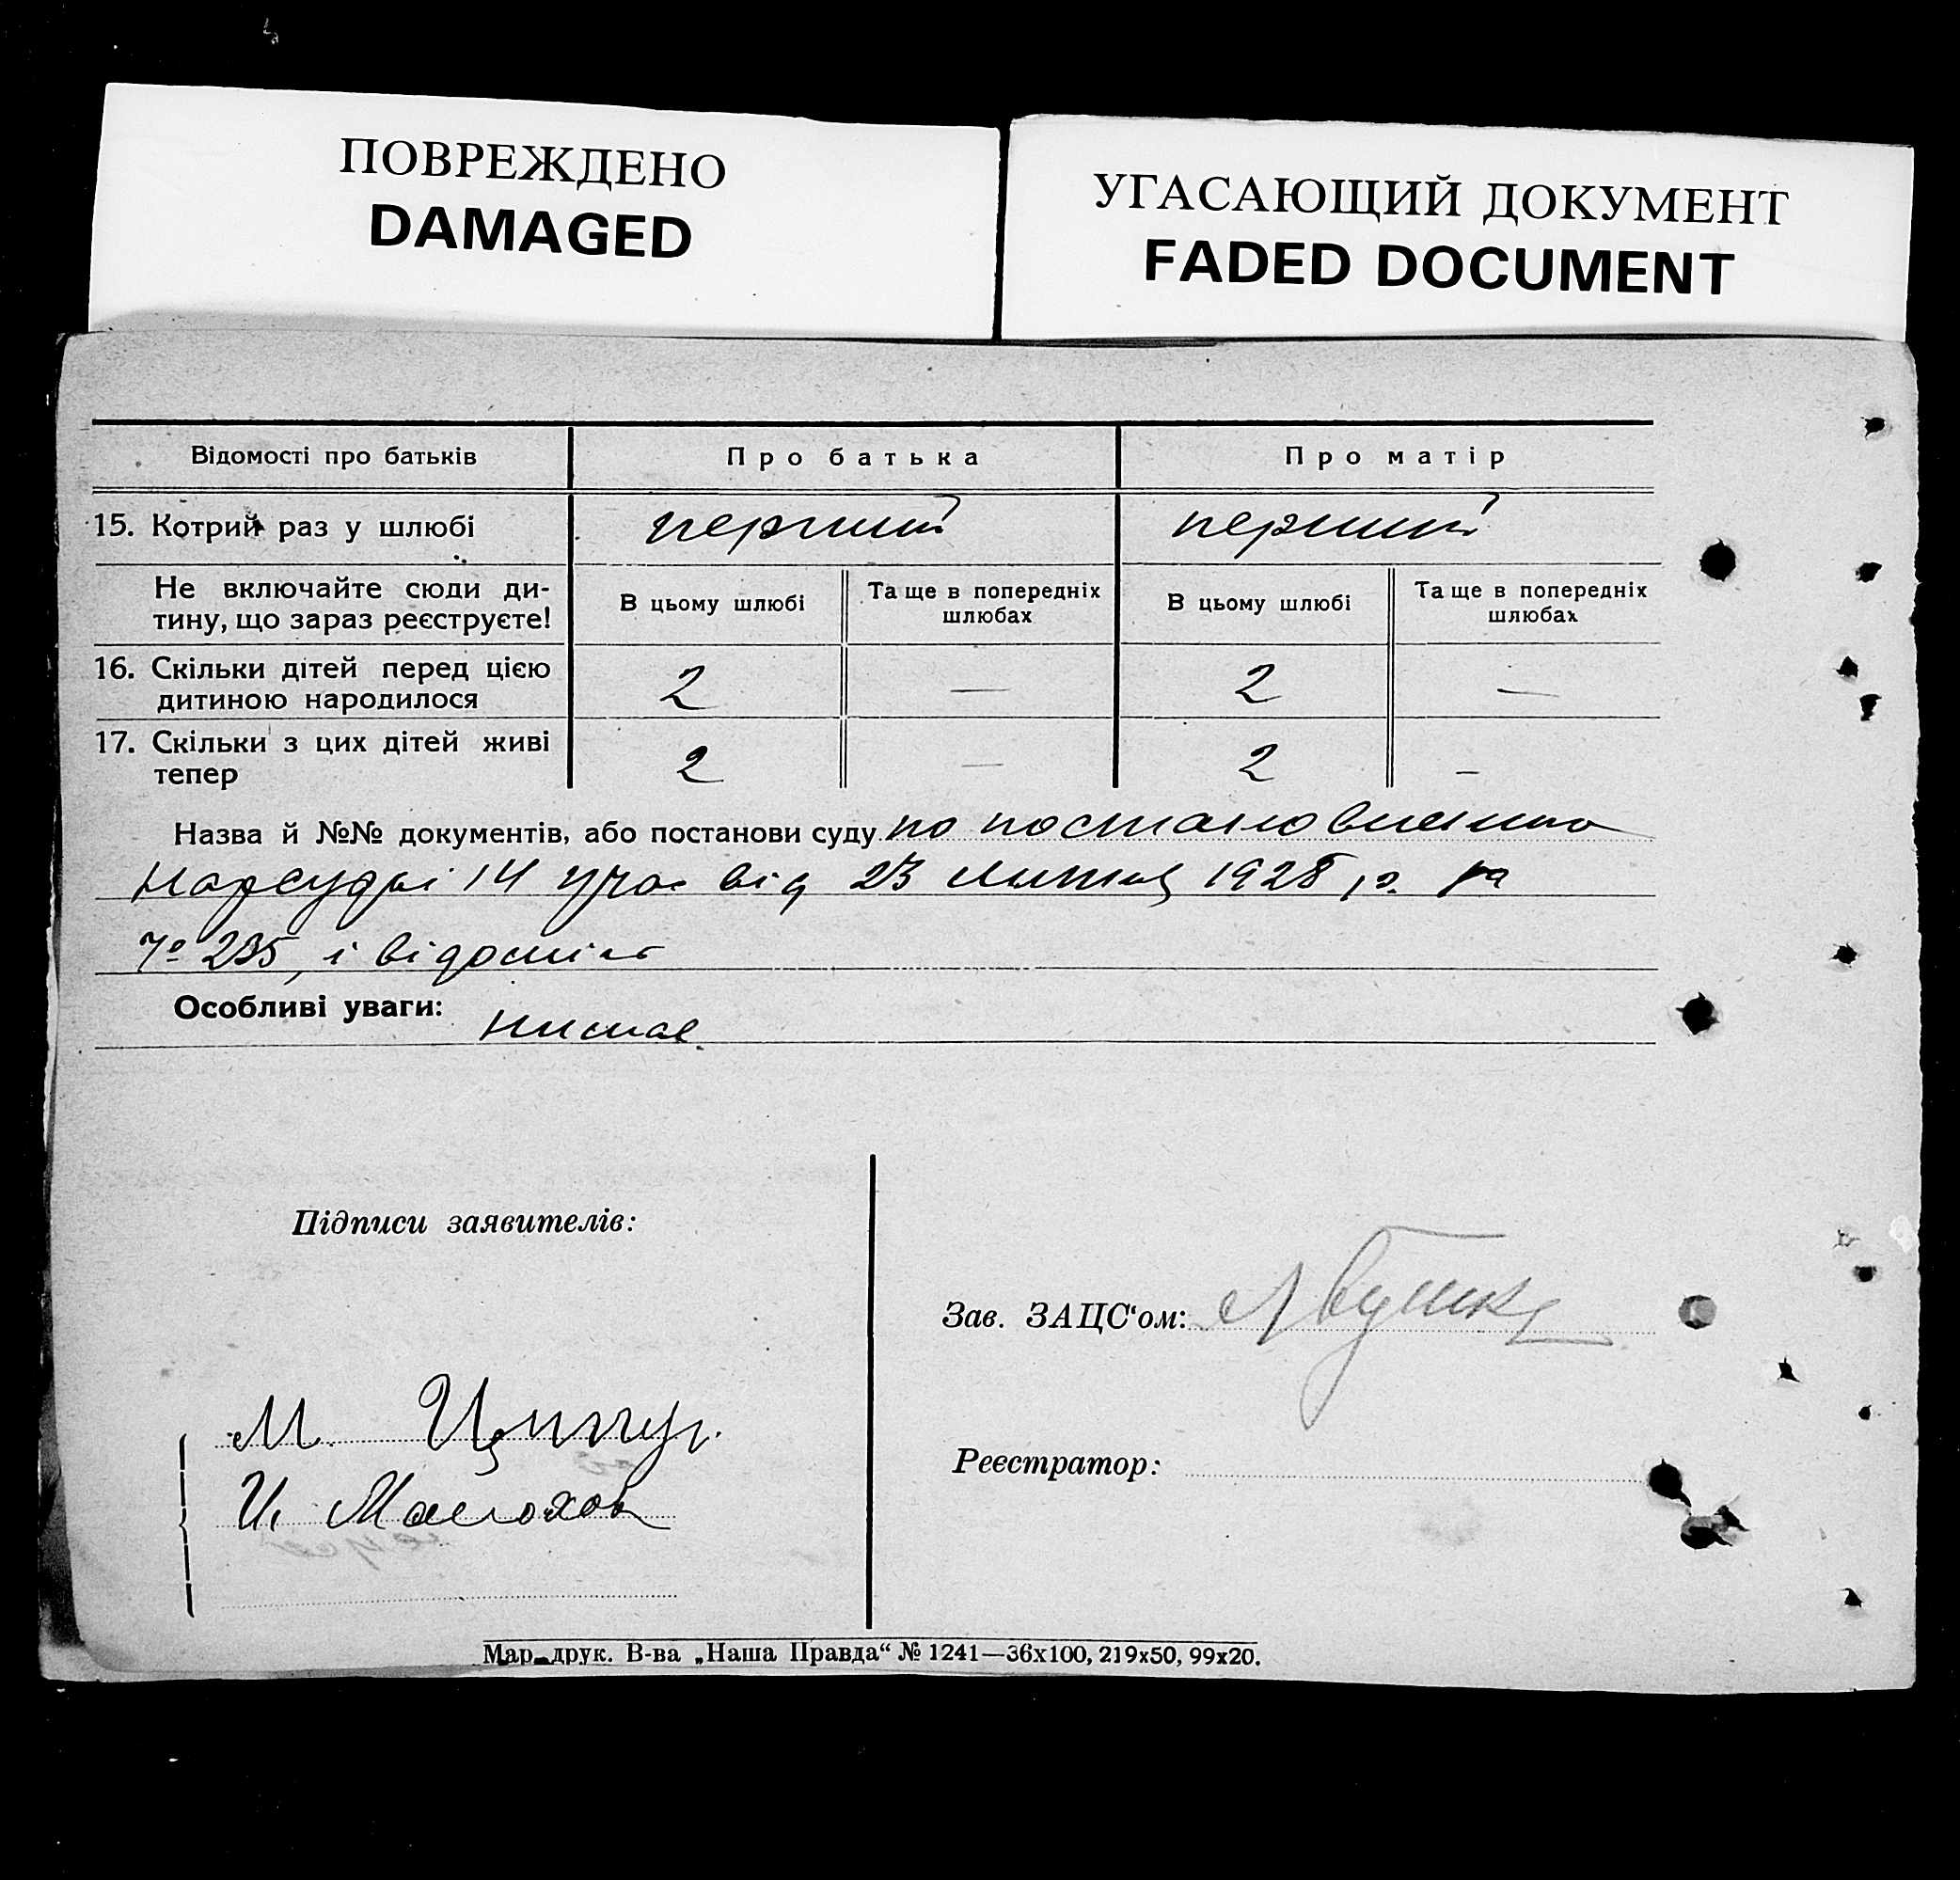 ПОВРЕЖДЕНО
DAMAGED
УГАСАЮЩИЙ ДОКУМЕНТ
FADED DOCUMENT
Відомості про батьків Про батька Про матір
15. Котрий раз у шлюбі перший перший
Не включайте сюди ди-
тину, що зараз реєструєте!
В цьому шлюбі
Та ще в попередніх
шлюбах
В цьому шлюбі
Та ще в попередніх
шлюбах
16. Скільки дітей перед цією
дитиною народилося 2 — 2 —
17. Скільки з цих дітей живі
тепер 2 — 2 —
Назва й №№ документів, або постанови суду по
Нарсудьі 14 від 23 1928 р. за
№ 235, і
Особливі уваги: нимае.
Підписи заявителів:
Зав. ЗАЦС‘ом:
М.
И.
Реєстратор:
Мар. друк. В-ва „Наша Правда“ № 1241—36х100, 219х50, 99х20.